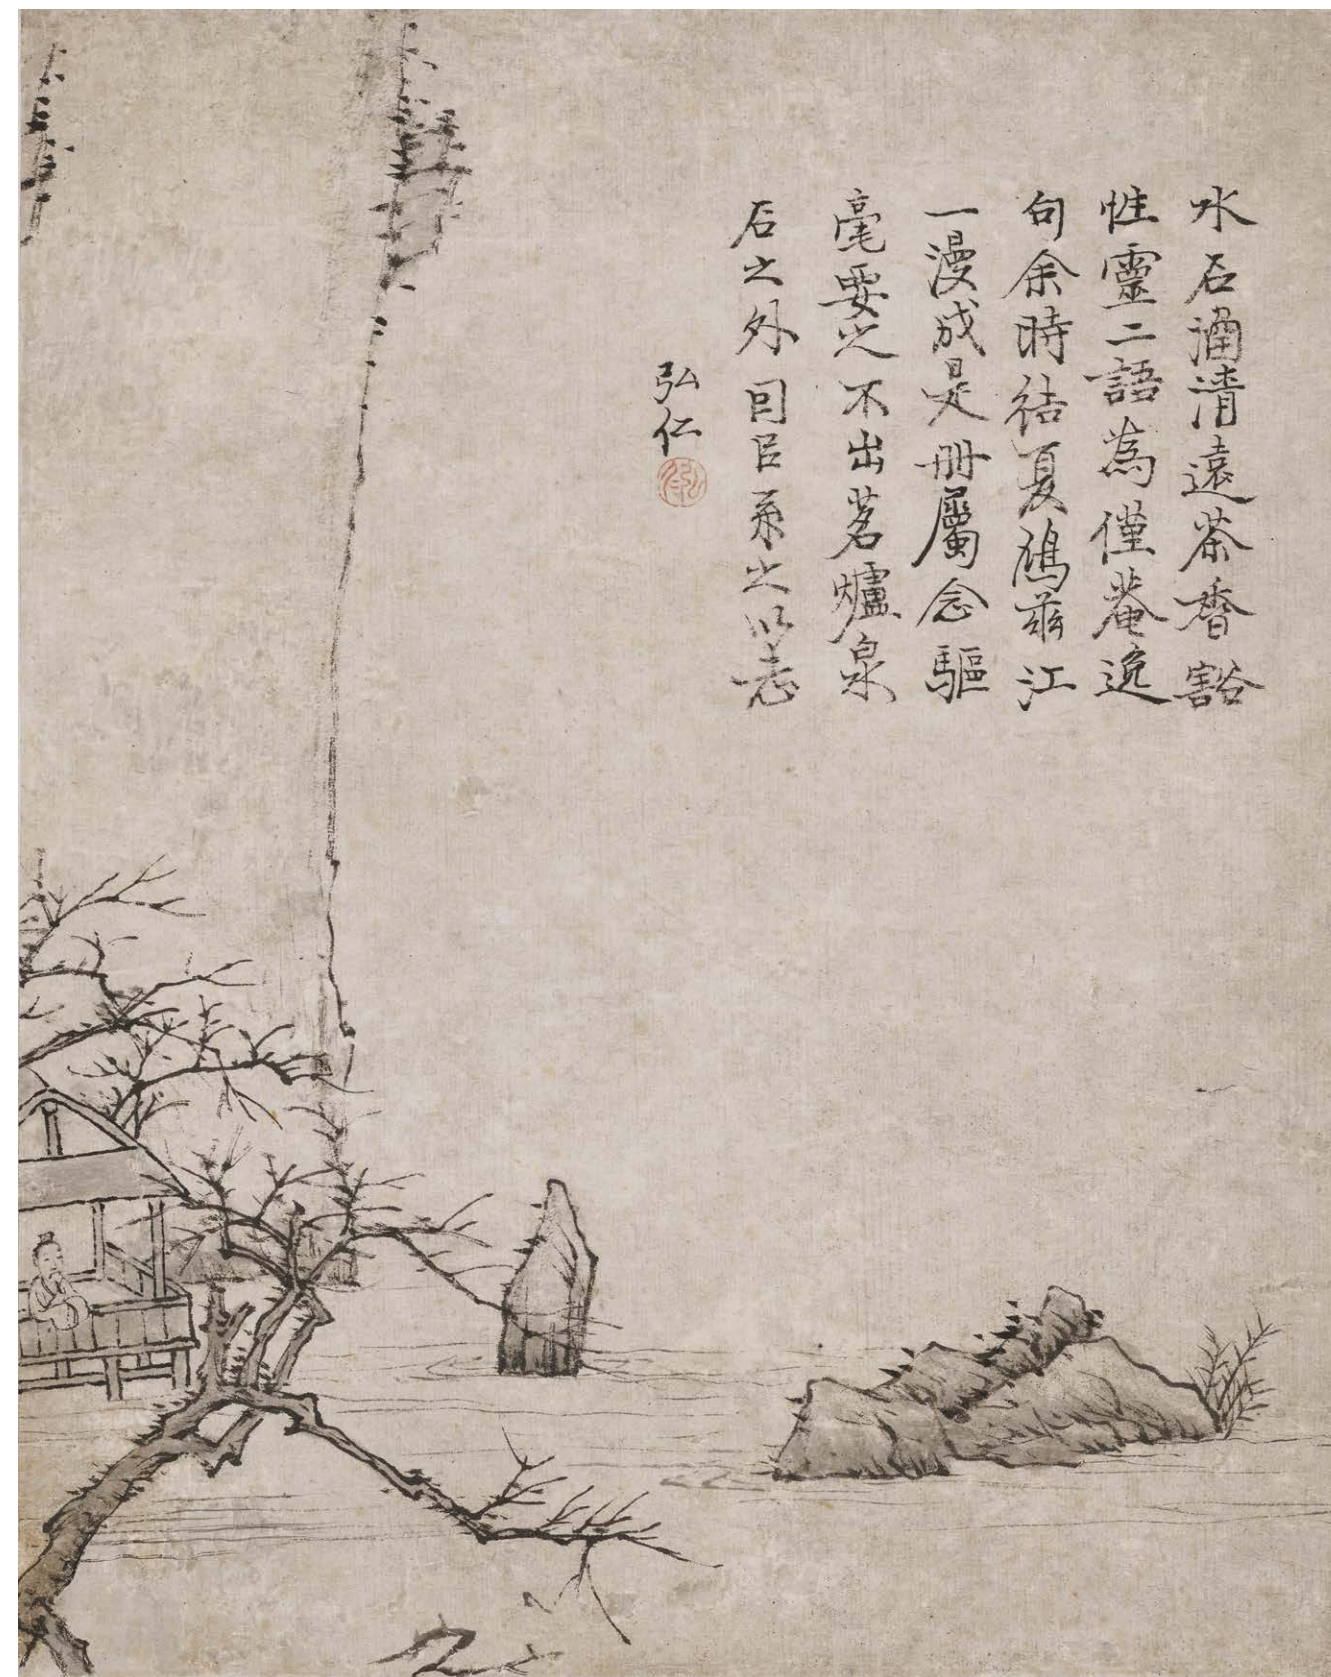 水石涵清遠茶香豁
性靈二語為僅菴逸
句余時結夏鳩茲江
一漫成是冊屬念驅
毫要之不出茗爐泉
石之外囙㠯系之以志
弘仁
弘仁